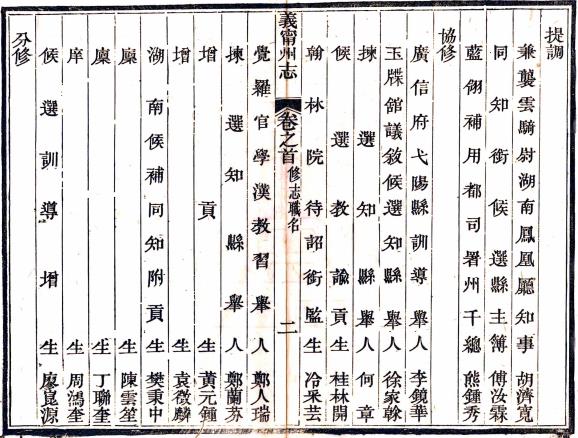 提調
兼襲雲騎尉湖南鳳凰廳知事 胡濟寬
同知銜候選縣主簿 傅汝霖
藍翎補用都司署州千總 熊鍾秀
協修
廣信府弋陽縣訓導舉人 李鏡華
玉牒館議敘候選知縣舉人 徐家榦
揀選知縣舉人 何章
候選教諭貢生 桂林開
翰林院待詔銜監生 冷采芸
義甯州志 卷之首 修志職名 二
覺羅官學漢教習舉人 鄭人瑞
揀選知縣舉人 鄭蘭芬
增貢生 黃元鍾
增生 袁徵麟
湖南候補同知附貢生 樊秉中
廩生 陳雲笙
廩生 丁聯奎
庠生 周鴻奎
候選訓導增生 廖崑源
分修